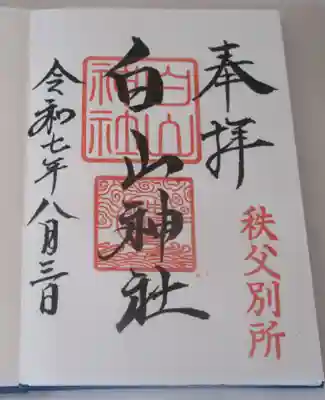 奉拝
秩父別所
白山神社
白山
神社
令和七年八月三日